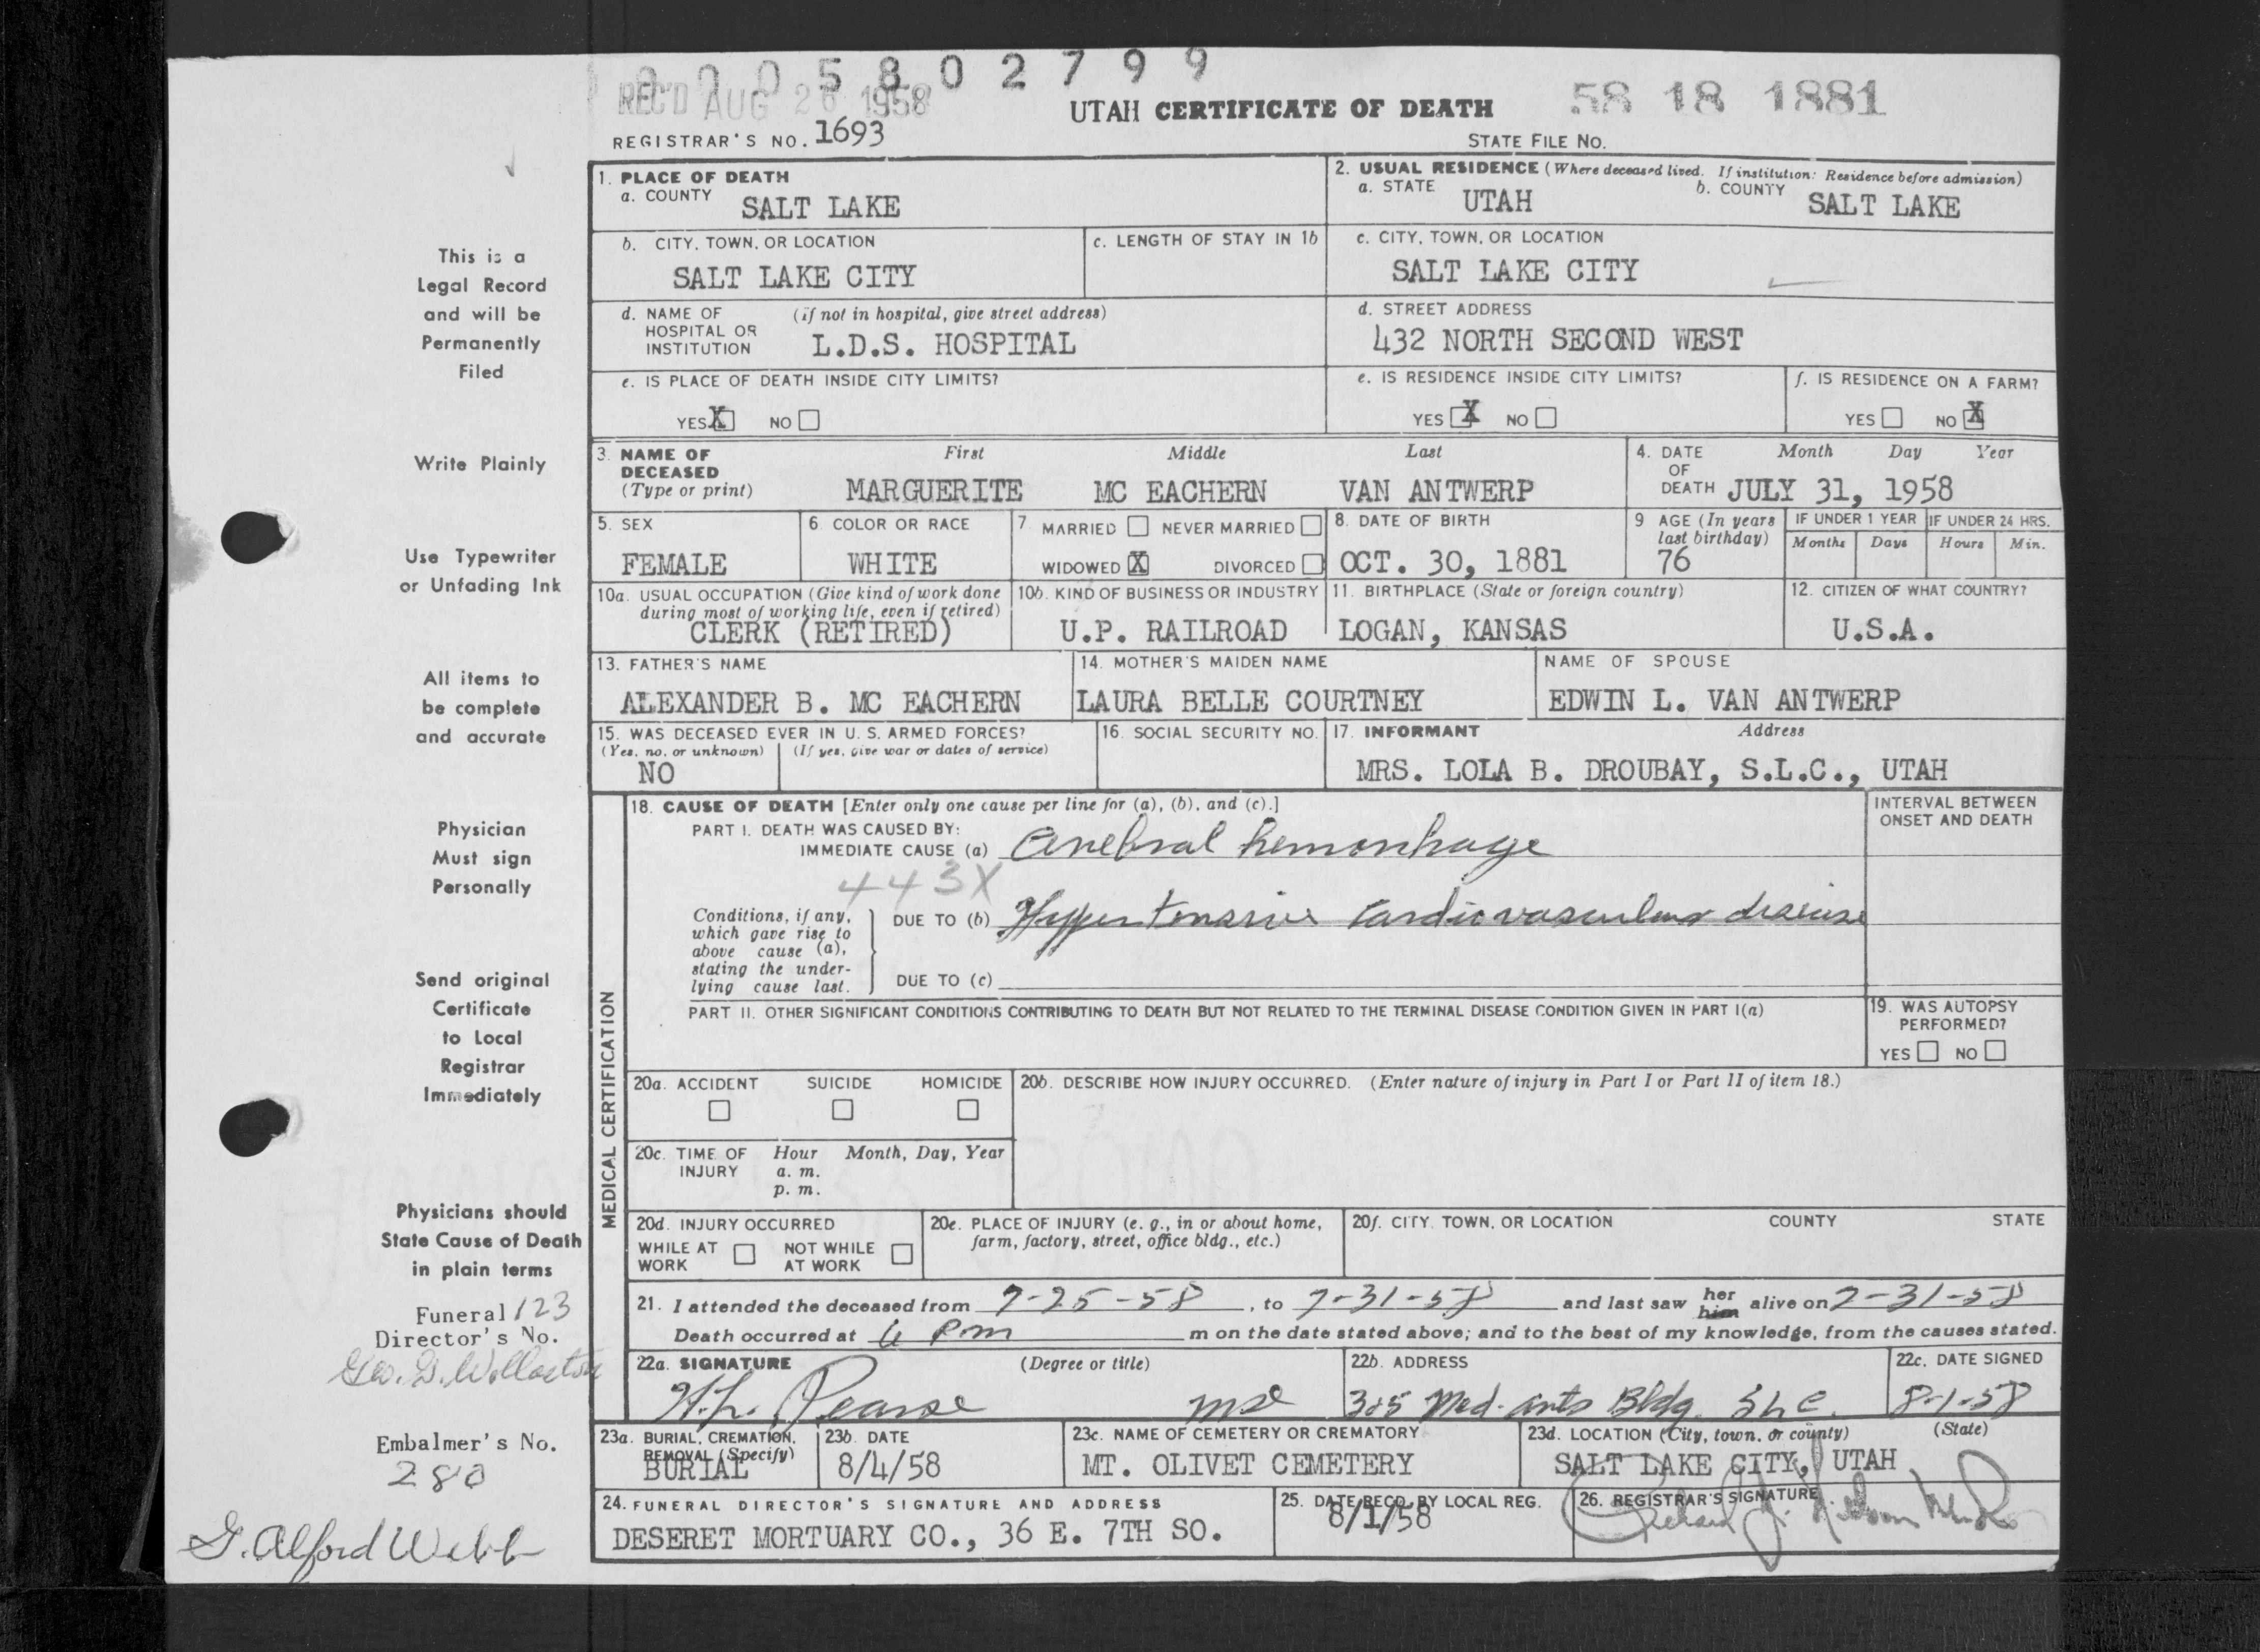 0005802799
REC'D AUG 26 1958
UTAH CERTIFICATE OF DEATH
58 18 1881
REGISTRAR'S NO. 1693
STATE FILE NO.
1. PLACE OF DEATH
a. COUNTY SALT LAKE
2. USUAL RESIDENCE (Where deceased lived. If institution: Residence before admission)
a. STATE UTAH b. COUNTY SALT LAKE
b. CITY, TOWN, OR LOCATION
SALT LAKE CITY
c. LENGTH OF STAY IN 1b
c. CITY, TOWN, OR LOCATION
SALT LAKE CITY
d. NAME OF HOSPITAL OR INSTITUTION (if not in hospital, give street address)
L.D.S. HOSPITAL
d. STREET ADDRESS
432 NORTH SECOND WEST
e. IS PLACE OF DEATH INSIDE CITY LIMITS?
YES X NO
e. IS RESIDENCE INSIDE CITY LIMITS?
YES X NO
f. IS RESIDENCE ON A FARM?
YES NO X
3. NAME OF DECEASED (Type or print)
First Middle Last
MARGUERITE MC EACHERN VAN ANTWERP
4. DATE OF DEATH Month Day Year
JULY 31, 1958
5. SEX
FEMALE
6. COLOR OR RACE
WHITE
7. MARRIED NEVER MARRIED
WIDOWED X DIVORCED
8. DATE OF BIRTH
OCT. 30, 1881
9 AGE (In years last birthday)
76
IF UNDER 1 YEAR IF UNDER 24 HRS.
Months Days Hours Min.
10a. USUAL OCCUPATION (Give kind of work done during most of working life, even if retired)
CLERK (RETIRED)
10b. KIND OF BUSINESS OR INDUSTRY
U.P. RAILROAD
11. BIRTHPLACE (State or foreign country)
LOGAN, KANSAS
12. CITIZEN OF WHAT COUNTRY?
U.S.A.
13. FATHER'S NAME
ALEXANDER B. MC EACHERN
14. MOTHER'S MAIDEN NAME
LAURA BELLE COURTNEY
NAME OF SPOUSE
EDWIN L. VAN ANTWERP
15. WAS DECEASED EVER IN U. S. ARMED FORCES?
(Yes, no, or unknown) (If yes, give war or dates of service)
NO
16. SOCIAL SECURITY NO.
17. INFORMANT Address
MRS. LOLA B. DROUBAY, S.L.C., UTAH
MEDICAL CERTIFICATION
18. CAUSE OF DEATH [Enter only one cause per line for (a), (b), and (c).]
INTERVAL BETWEEN ONSET AND DEATH
PART I. DEATH WAS CAUSED BY:
IMMEDIATE CAUSE (a) Cerebral hemorrhage
443X
Conditions, if any, which gave rise to above cause (a), stating the underlying cause last.
DUE TO (b) Hypertensive cardiovascular disease
DUE TO (c)
PART II. OTHER SIGNIFICANT CONDITIONS CONTRIBUTING TO DEATH BUT NOT RELATED TO THE TERMINAL DISEASE CONDITION GIVEN IN PART I(a)
19. WAS AUTOPSY PERFORMED?
YES NO
20a. ACCIDENT SUICIDE HOMICIDE
20b. DESCRIBE HOW INJURY OCCURRED. (Enter nature of injury in Part I or Part II of item 18.)
20c. TIME OF INJURY Hour Month, Day, Year
a. m.
p. m.
20d. INJURY OCCURRED
WHILE AT WORK NOT WHILE AT WORK
20e. PLACE OF INJURY (e. g., in or about home, farm, factory, street, office bldg., etc.)
20f. CITY, TOWN, OR LOCATION COUNTY STATE
21. I attended the deceased from 7-25-58, to 7-31-58 and last saw her him alive on 7-31-58
Death occurred at 6 pm m on the date stated above; and to the best of my knowledge, from the causes stated.
22a. SIGNATURE (Degree or title)
H.L. Pearse MD
22b. ADDRESS
305 Med. arts Bldg. SLC.
22c. DATE SIGNED
8-1-58
23a. BURIAL, CREMATION, REMOVAL (Specify)
BURIAL
23b. DATE
8/4/58
23c. NAME OF CEMETERY OR CREMATORY
MT. OLIVET CEMETERY
23d. LOCATION (City, town, or county) (State)
SALT LAKE CITY, UTAH
24. FUNERAL DIRECTOR'S SIGNATURE AND ADDRESS
DESERET MORTUARY CO., 36 E. 7TH SO.
25. DATE RECD. BY LOCAL REG.
8/1/58
26. REGISTRAR'S SIGNATURE
Richard J.
This is a
Legal Record
and will be
Permanently
Filed
Write Plainly
Use Typewriter
or Unfading Ink
All items to
be complete
and accurate
Physician
Must sign
Personally
Send original
Certificate
to Local
Registrar
Immediately
Physicians should
State Cause of Death
in plain terms
Funeral 123
Director's No.
Geo. D. Wollaston
Embalmer's No.
280
G. Alford Webb